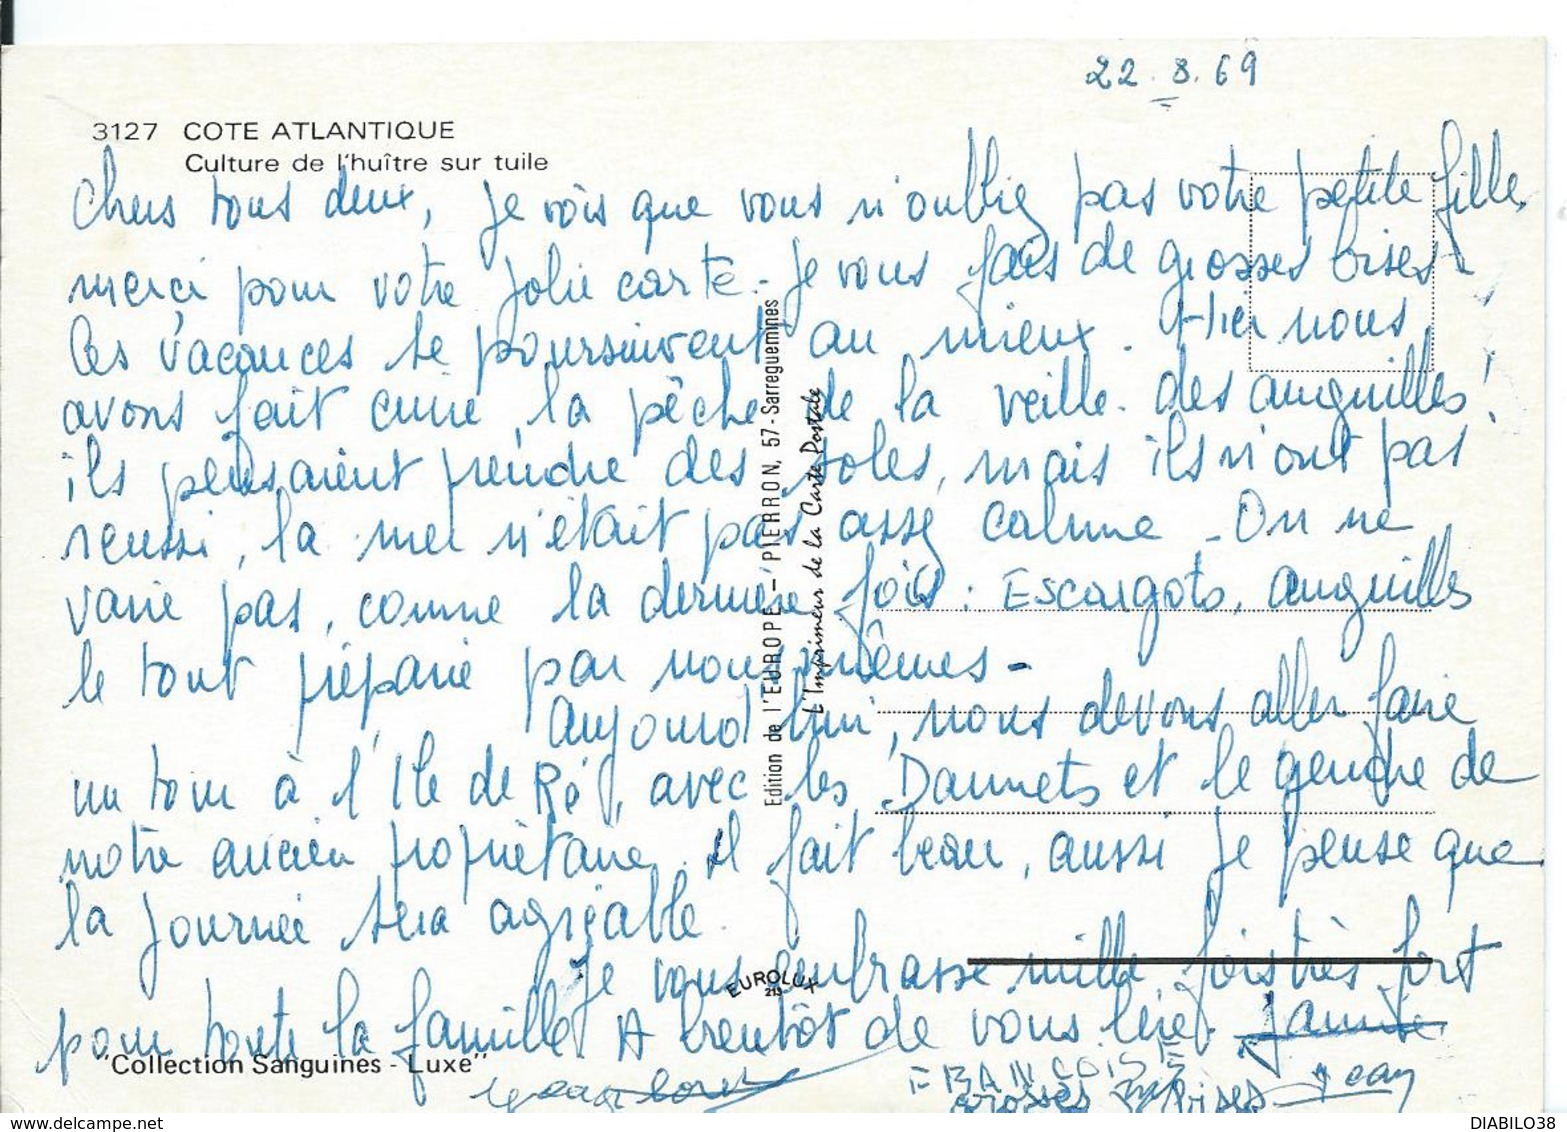 22.8.69
3127 COTE ATLANTIQUE
Culture de l'huître sur tuile
Chers tous deux, je vois que vous n'oubliez pas votre petite fille,
merci pour votre jolie carte - je vous fais de grosses bises -
Les vacances se poursuivent au mieux. Hier nous
avons fait cuire la pêche de la veille. des anguilles !
ils pensaient prendre des soles, mais ils n'ont pas
réussi, la mer n'était pas assez calme - On ne
varie pas, comme la dernière fois : Escargots, anguilles
le tout préparé par nous mêmes -
Aujourd'hui, nous devons aller faire
un tour à l'Ile de Ré, avec les Daunets et le gendre de
notre ancien propriétaire. Il fait beau, aussi je pense que
la journée sera agréable.
Je vous embrasse mille fois très fort
pour toute la famille. A bientôt de vous lire. Janine
FRANCOISE Jean
grosses bises
Edition de l'EUROPE - PIERRON, 57 - Sarreguemines
L'Imprimeur de la Carte Postale
EUROLUX
213
"Collection Sanguines - Luxe"
DIABILO38